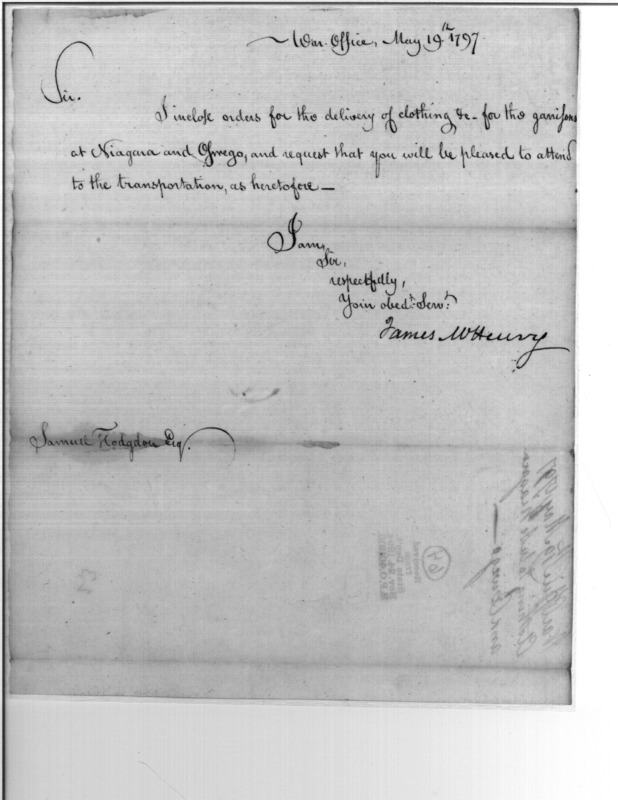 War Office, May 19th 1797
Sir.
I inclose orders for the delivery of clothing &c - for the garrisons
at Niagara and Oswego, and request that you will be pleased to attend
to the transportation, as heretofore —
I am,
Sir,
respectfully,
Your obedt. Servt.
James McHenry
Samuel Hodgdon Esq.
64
23